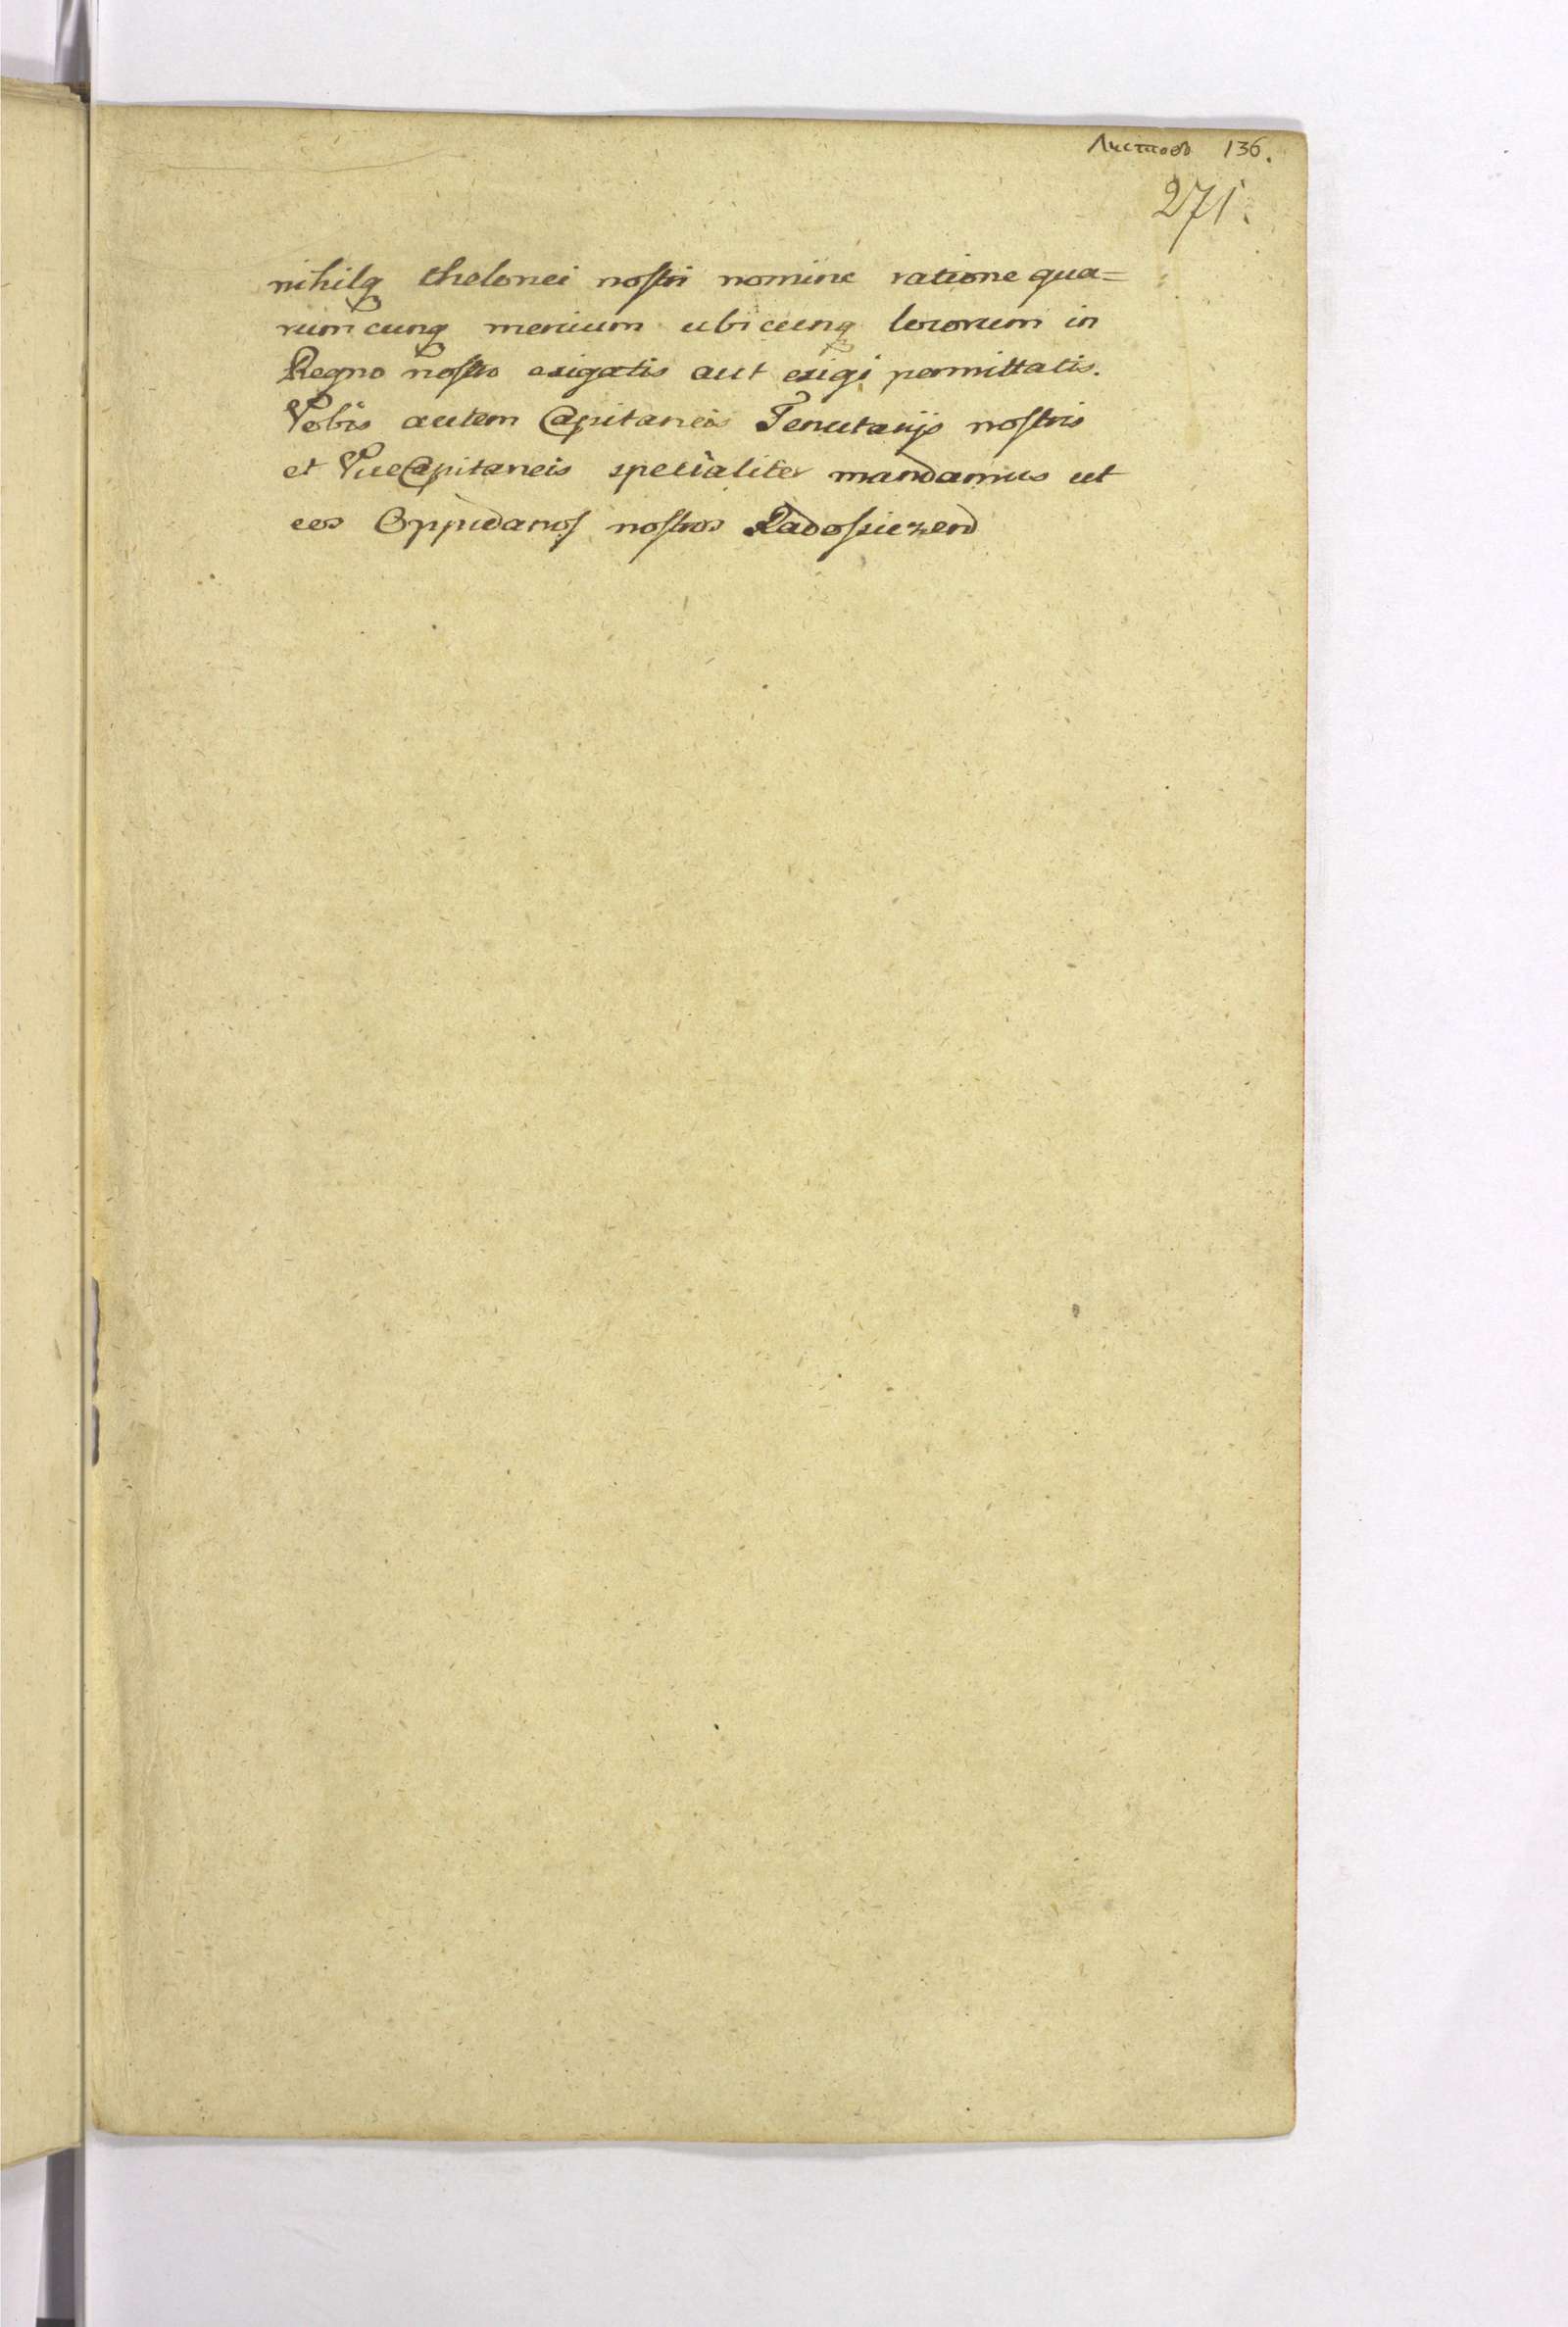 Листовъ 136.
271.
nihilq thelonei nostri nomine ratione qua=
rumcunq mercium ubicunq locorum in
Regno nostro exigatis aut exigi permittatis.
Vobis autem Capitaneis Tenutarijs nostris
et ViceCapitaneis specialiter mandamus ut
eos Oppidanos nostros Radosziczen